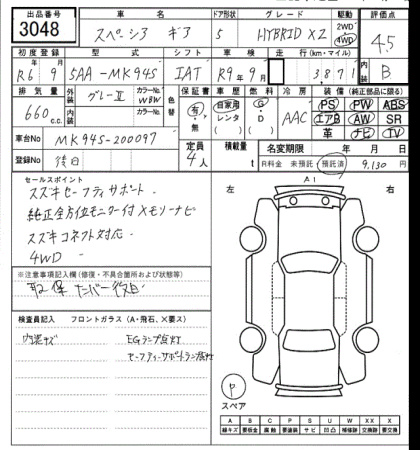 出品番号 車名 ドア形状 グレード 駆動 評価点
3048 スペーシア ギア 5 HYBRID XZ 2WD 4WD 4.5
初度登録 型式 シフト 車検 走行 (km・マイル) 内装
R6 9 5AA-MK94S IAT R9年9月 3,871 B
排気量 外装 カラーNo. 色替 保証書 車歴 燃料 冷房 装備(純正部品に限る)
660 c.c. グレーⅡ WBW 有・無 自家用 レンタ G D AAC PS PW ABS
内装 カラーNo. エアB AW SR
革 ナビ TV
車台No MK94S-200097 定員 4人 積載量 t 名変期限 年 月 日
登録No 後日 R料金 未預託 預託済 9,130円
セールスポイント
スズキセーフティサポート
純正全方位モニター付メモリーナビ
スズキコネクト対応
4WD
※注意事項記入欄(修復・不具合箇所および状態等)
取保 ナンバー後日
検査員記入 フロントガラス(A・飛石、×要ス)
内装キズ EGランプ点灯
セーフティサポートランプ点灯
左 A1 右
P
スペア
A B C P S U W X XX
線キズ 要板金 腐蝕 要塗装 サビ 凹凸 補修跡 要交換 交換跡